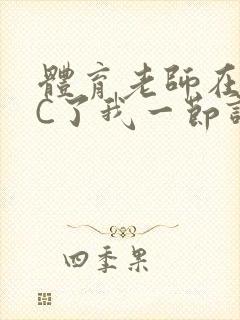 體育老師在
C了我一節
四季果